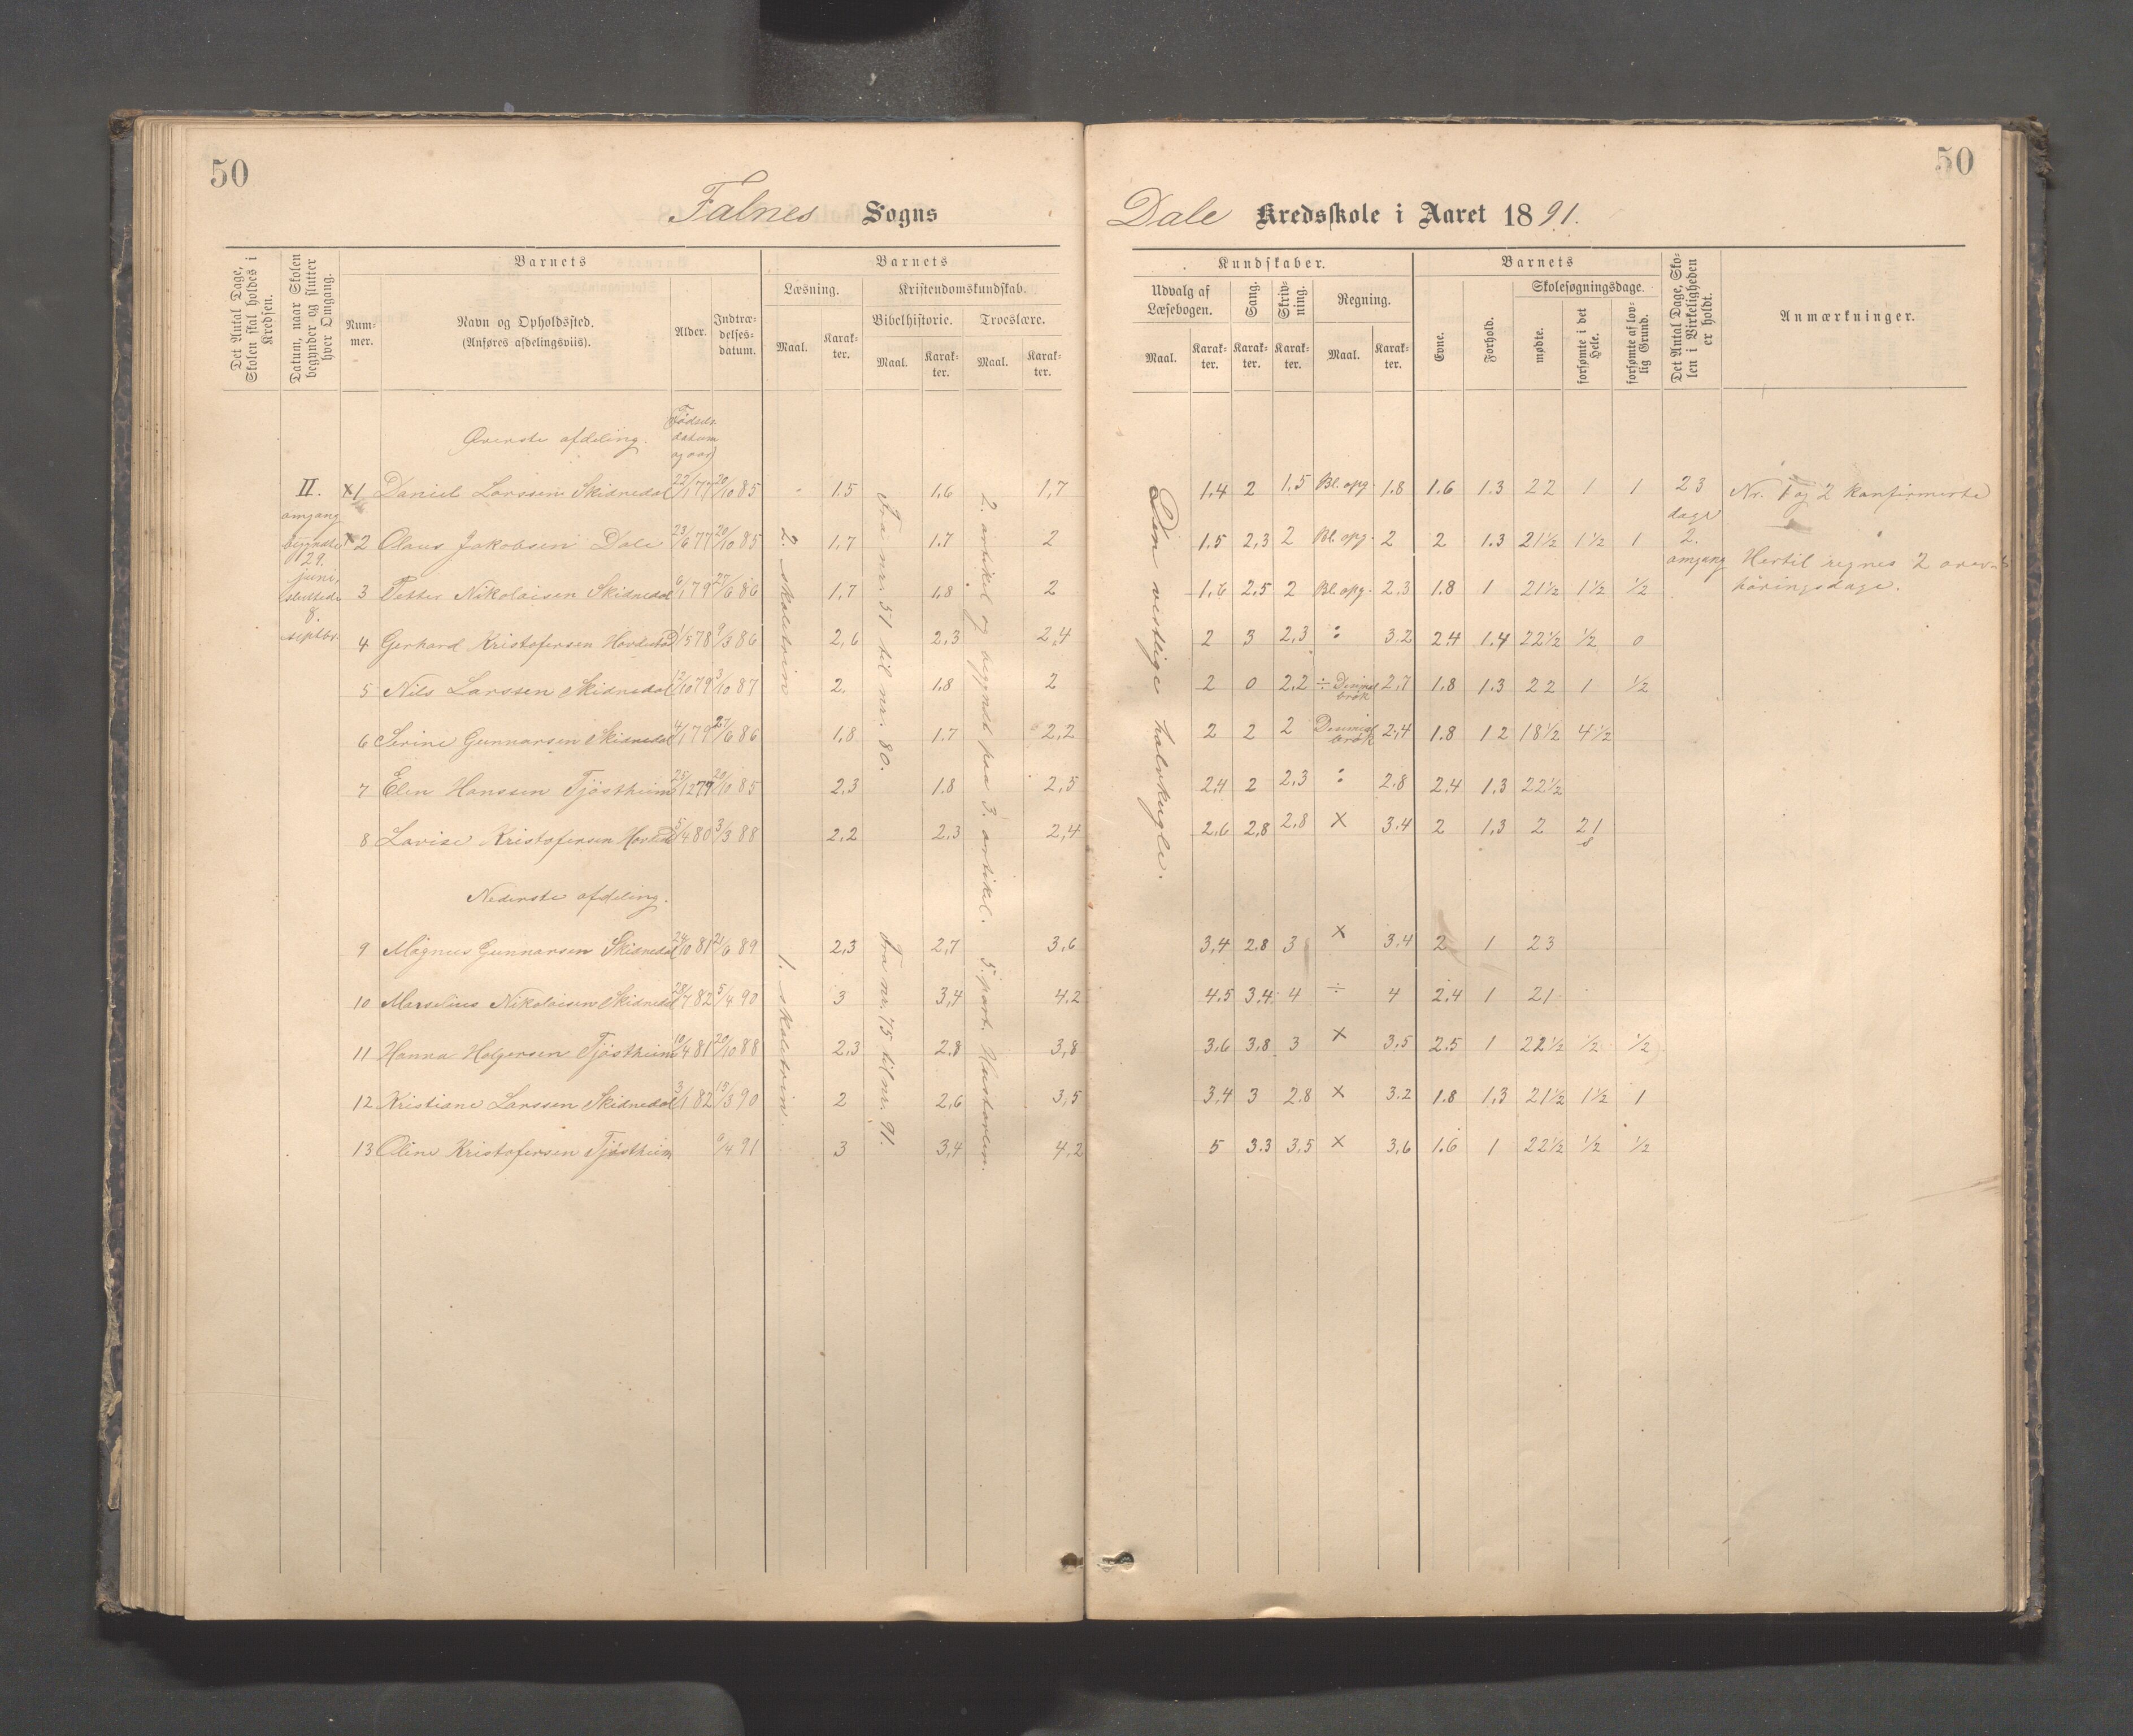 50
50
Falnes Sogns
Dale Kredsskole i Aaret 1891.
Det Antal Dage, Skolen skal holdes i Kredsen.
Datum, naar Skolen begynder og slutter hver Omgang.
Barnets
Num-mer.
Navn og Opholdssted.
(Anføres afdelingsviis).
Alder.
Indtræ-delses-datum.
Barnets
Læsning.
Maal.
Karak-ter.
Kristendomskundskab.
Bibelhistorie.
Troeslære.
Maal.
Karak-ter.
Maal.
Karak-ter.
Kundskaber.
Udvalg af Læsebogen.
Maal.
Karak-ter.
Sang.
Karak-ter.
Skriv-ning.
Karak-ter.
Regning.
Maal.
Karak-ter.
Barnets
Evne.
Forhold.
Skolesøgningsdage.
mødte.
forsømte i det Hele.
forsømte af lov-lig Grund.
Det Antal Dage, Sko-len i Virkeligheden er holdt.
Anmærkninger.
Øverste afdeling.
Fødsels datum og aar)
II. omgang begyndte 29. juni, sluttede 8. septbr.
2. skoletrin
Fra nr. 51 til nr. 80.
2. artikel og begyndt paa 3. artikel.
Den vestlige halvkugle.
x1 Daniel Larssen Skidnedal 22/1 77 20/10 85 1.5 1,6 1,7 1,4 2 1,5 Bl. opg. 1.8 1.6 1.3 22 1 1 23 dage 2. omgang Nr. 1 og 2 konfirmerte
x2 Olaus Jakobsen Dale 23/6 77 20/10 85 1,7 1.7 2 1.5 2,3 2 Bl. opg. 2 2 1.3 21½ 1½ 1
3 Petter Nikolaisen Skidnedal 6/1 79 27/6 86 1,7 1,8 2 1,6 2.5 2 Bl. opg. 2.3 1.8 1 21½ 1½ ½
Hertil regnes 2
høringsdage.
4 Gerhard Kristofersen 1/5 78 9/3 86 2,6 2.3 2,4 2 3 2,3 : 3.2 2.4 1.4 22½ ½ 0
5 Nils Larssen Skidnedal 12/10 79 3/10 87 2. 1.8 2 2 0 2.2 ÷ Desimal brøk 2,7 1.8 1.3 22 1 ½
6 Serine Gunnarsen Skidnedal 4/1 79 27/6 86 1.8 1.7 2,2 2 2 2 Desimal brøk 2,4 1.8 1 2 18½ 4½
7 Elen Hanssen Tjøstheim 25/12 79 20/10 85 2,3 1.8 2,5 2,4 2 2,3 : 2.8 2.4 1.3 22½
8 Lovise Kristofersen 5/4 80 3/3 88 2,2 2.3 2,4 2.6 2,8 2,8 x 3.4 2 1,3 2 21
Nederste afdeling.
1. skoletrin.
Fra nr. 75 til nr. 91.
5. part. Hustavlen.
9 Magnus Gunnarsen Skidnedal 24/10 81 21/6 89 2,3 2,7 3,6 3,4 2.8 3 x 3.4 2 1 23
10 Marselius Nikolaisen Skidnedal 28/7 82 5/4 90 3 3,4 4.2 4.5 3,4 4 ÷ 4 2,4 1 21
11 Hanna Holgersen Tjøstheim 10/4 81 20/10 88 2,3 2.8 3,8 3.6 3,8 3 x 3,5 2.5 1 22½ ½ ½
12 Kristiane Larssen Skidnedal 3/1 82 13/3 90 2 2,6 3,5 3,4 3 2.8 x 3.2 1.8 1,3 21½ 1½ 1
13 Oline Kristofersen Tjøstheim 6/4 91 3 3,4 4,2 5 3.3 3,5 x 3,6 1.6 1 22½ ½ ½